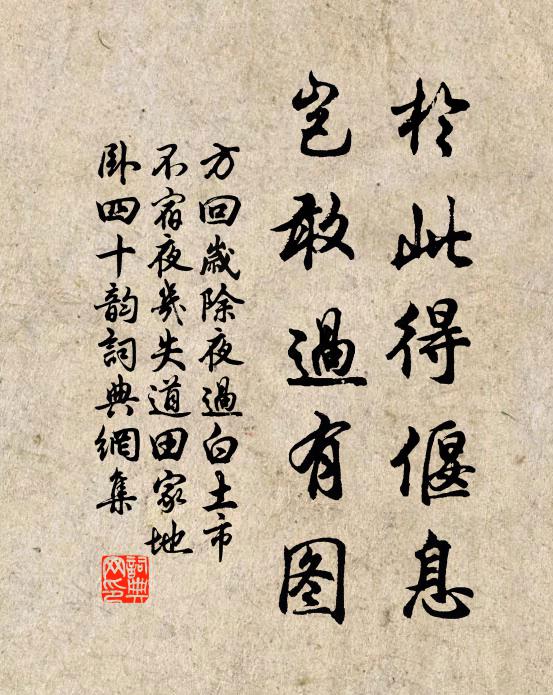 於此得偃息
岂敢過有图
方回歲除夜過白土市
不宿夜幾失道田家地
卧四十韵詞典網集
詞典
网印